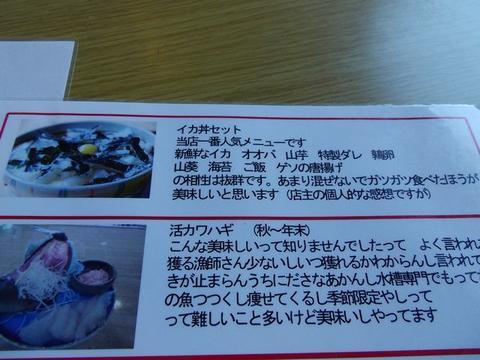 イカ丼セット
当店一番人気メニューです
新鮮なイカ　オオバ　山芋　特製ダレ　鶉卵
山葵　海苔　ご飯　ゲソの唐揚げ
の相性は抜群です。あまり混ぜないでガツガツ食べたほうが
美味しいと思います（店主の個人的な感想ですが）
活カワハギ　（秋～年末）
こんな美味しいって知りませんでしたって　よく言われ
獲る漁師さん少ないしいつ獲れるかわからんし言われて
きが止まらんうちにださなあかんし水槽専門でもって
の魚つつくし痩せてくるし季節限定やしって
って難しいこと多いけど美味いしやってます